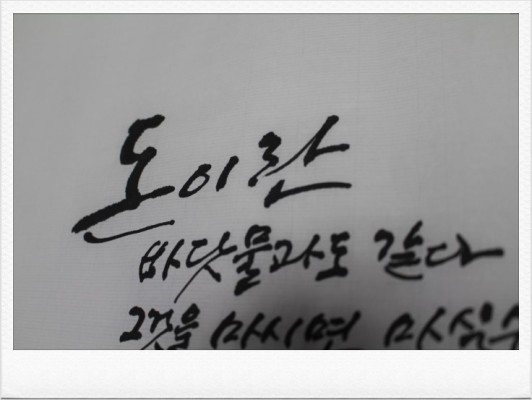 돈이란
바닷물과도 같다
그것을 마시면 마실수